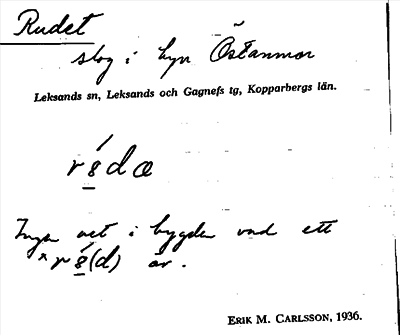 Rudet
slog i byn Östanmor
Leksands sn, Leksands och Gagnefs tg, Kopparbergs län.
Ingen vet i bygden vad ett
är.
ERIK M. CARLSSON, 1936.